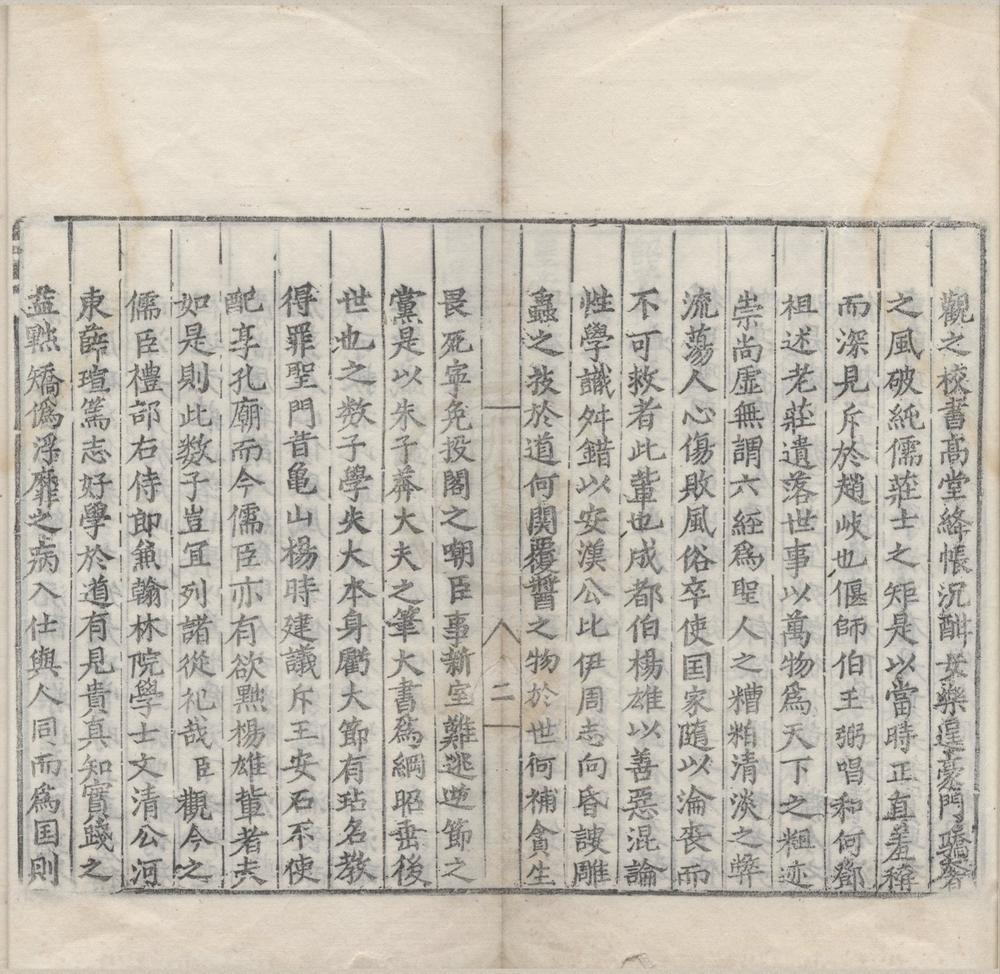 觀之校書高堂絳帳沉酣女樂逞豪門驕奢
之風破純儒莊士之矩是以當時正直羞稱
而深見斥於趙岐也偃師伯王弼唱和何鄧
祖述老莊遺落世事以萬物為天下之粗迹
崇尚虛無謂六經為聖人之糟粕清淡之弊
流蕩人心傷敗風俗卒使国家隨以淪喪而
不可救者此輩也成都伯楊雄以善惡混論
性學讖舛錯以安漢公比伊周志向昏謏雕
蟲之技於道何関覆醬之物於世何補貪生
二
畏死寧免投閣之嘲臣事新室難逃逆節之
黨是以朱子莽大夫之筆大書為綱昭垂後
世也之数子學失大本身虧大節有玷名教
得罪聖門昔亀山楊時建議斥王安石不使
配享孔廟而今儒臣亦有欲黜楊雄輩者夫
如是則此数子豈冝列諸從祀哉臣觀今之
儒臣禮部右侍郎兼翰林院學士文清公河
東薛瑄篤志好學於道有見貴真知實踐之
益黜矯偽浮靡之病入仕與人同而為国則